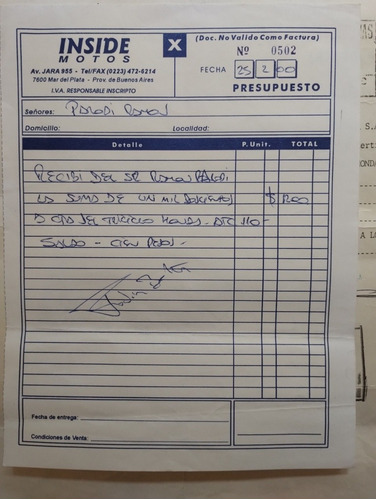 INSIDE
MOTOS
Av. JARA 955 - Tel/FAX (0223) 472-6214
7600 Mar del Plata - Prov. de Buenos Aires
I.V.A. RESPONSABLE INSCRIPTO
X
(Doc. No Valido Como Factura)
Nº 0502
FECHA 25 2 00
PRESUPUESTO
Señores: PARODI RAMON
Domicilio: Localidad:
Detalle P. Unit. TOTAL
RECIBI DEL SR RAMON PARODI
LA SUMA DE UN MIL DOSCIENTOS $ 1200
DEL TRICICLO HONDA - ATC 110 -
SALDO - CIEN PESOS -
Fecha de entrega:
Condiciones de Venta: